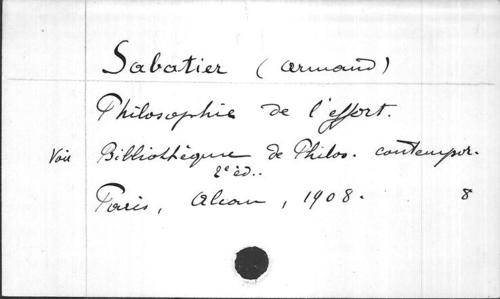 Sabatier (Armand)
Philosophie de l'effort.
Voir Bibliothèque de Philos. contempor.
2e éd..
Paris, Alcan, 1908. 8